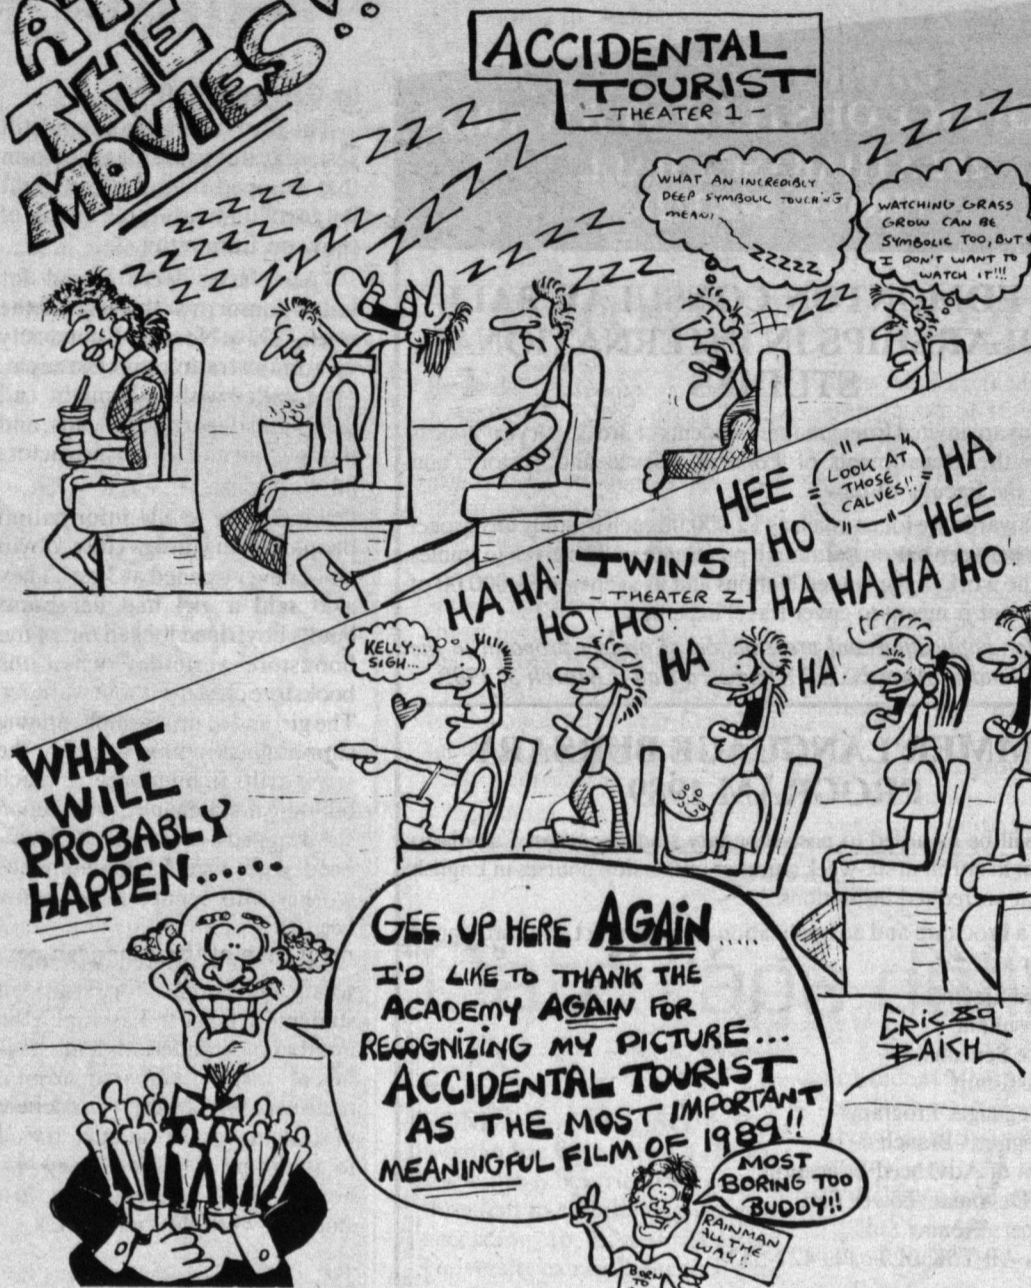 AT
THE
MOVIES!
ACCIDENTAL
TOURIST
- THEATER 1 -
ZZZZZ
WHAT AN INCREDIBLY
DEEP SYMBOLIC TOUCHING
MEANI
ZZZZZ
WATCHING GRASS
GROW CAN BE
SYMBOLIC TOO, BUT
I DON'T WANT TO
WATCH IT!!!
HEE
HO
LOOK AT
THOSE
CALVES!!
HA
HEE
TWINS
- THEATER 2 -
HA HA
HO HO
HA HA HA HO
HA
HA
KELLY...
SIGH...
WHAT
WILL
PROBABLY
HAPPEN.....
GEE UP HERE AGAIN.....
I'D LIKE TO THANK THE
ACADEMY AGAIN FOR
RECOGNIZING MY PICTURE...
ACCIDENTAL TOURIST
AS THE MOST IMPORTANT
MEANINGFUL FILM OF 1989!!
MOST
BORING TOO
BUDDY!!
RAINMAN
ALL THE
WAY!!
BORN
TO
ERIC 89
BAICH